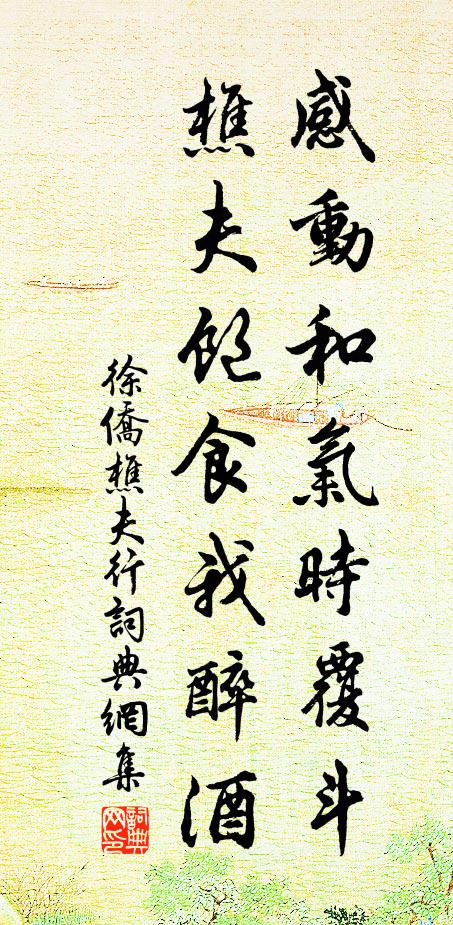 感動和氣時覆斗
樵夫飽食我醉酒
徐僑樵夫行詞典網集
詞典網印